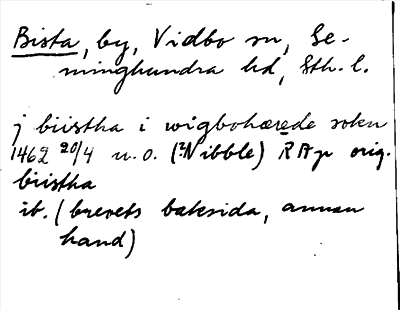 Bista, by, Vidbo sn, Se-
minghundra hd, Sth. l.
j biistha i wigbohærede sokn
1462 20/4 u.o. (?Nibble) RAp orig.
biistha
ib. (brevets baksida, annan
hand)